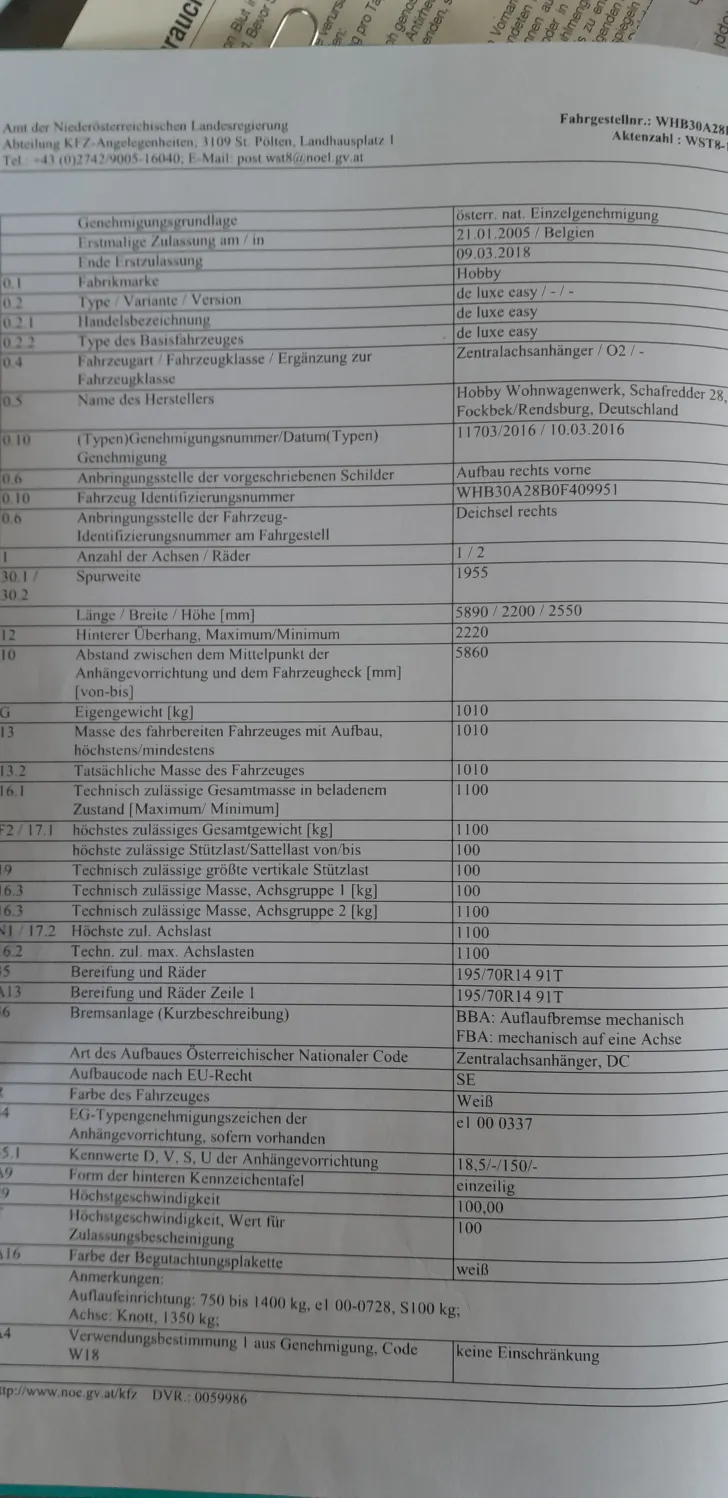 rauch
Fahrgestellnr.: WHB30A28
Amt der Niederösterreichischen Landesregierung
Aktenzahl : WST8-
Abteilung KFZ-Angelegenheiten, 3109 St. Pölten, Landhausplatz 1
Tel.: +43 (0)2742/9005-16040; E-Mail: post.wst8@noel.gv.at
Genehmigungsgrundlage österr. nat. Einzelgenehmigung
Erstmalige Zulassung am / in 21.01.2005 / Belgien
Ende Erstzulassung 09.03.2018
0.1 Fabrikmarke Hobby
0.2 Type / Variante / Version de luxe easy / - / -
0.2.1 Handelsbezeichnung de luxe easy
0.2.2 Type des Basisfahrzeuges de luxe easy
0.4 Fahrzeugart / Fahrzeugklasse / Ergänzung zur Zentralachsanhänger / O2 / -
Fahrzeugklasse
0.5 Name des Herstellers Hobby Wohnwagenwerk, Schafredder 28,
Fockbek/Rendsburg, Deutschland
0.10 (Typen)Genehmigungsnummer/Datum(Typen) 11703/2016 / 10.03.2016
Genehmigung
0.6 Anbringungsstelle der vorgeschriebenen Schilder Aufbau rechts vorne
0.10 Fahrzeug Identifizierungsnummer WHB30A28B0F409951
0.6 Anbringungsstelle der Fahrzeug- Deichsel rechts
Identifizierungsnummer am Fahrgestell
1 Anzahl der Achsen / Räder 1 / 2
30.1 / Spurweite 1955
30.2
Länge / Breite / Höhe [mm] 5890 / 2200 / 2550
12 Hinterer Überhang, Maximum/Minimum 2220
10 Abstand zwischen dem Mittelpunkt der 5860
Anhängevorrichtung und dem Fahrzeugheck [mm]
[von-bis]
G Eigengewicht [kg] 1010
13 Masse des fahrbereiten Fahrzeuges mit Aufbau, 1010
höchstens/mindestens
13.2 Tatsächliche Masse des Fahrzeuges 1010
16.1 Technisch zulässige Gesamtmasse in beladenem 1100
Zustand [Maximum/ Minimum]
F2 / 17.1 höchstes zulässiges Gesamtgewicht [kg] 1100
höchste zulässige Stützlast/Sattellast von/bis 100
19 Technisch zulässige größte vertikale Stützlast 100
16.3 Technisch zulässige Masse, Achsgruppe 1 [kg] 100
16.3 Technisch zulässige Masse, Achsgruppe 2 [kg] 1100
N1 / 17.2 Höchste zul. Achslast 1100
6.2 Techn. zul. max. Achslasten 1100
5 Bereifung und Räder 195/70R14 91T
A13 Bereifung und Räder Zeile 1 195/70R14 91T
6 Bremsanlage (Kurzbeschreibung) BBA: Auflaufbremse mechanisch
FBA: mechanisch auf eine Achse
Art des Aufbaues Österreichischer Nationaler Code Zentralachsanhänger, DC
Aufbaucode nach EU-Recht SE
Farbe des Fahrzeuges Weiß
4 EG-Typengenehmigungszeichen der e1 00 0337
Anhängevorrichtung, sofern vorhanden
5.1 Kennwerte D, V, S, U der Anhängevorrichtung 18,5/-/150/-
A9 Form der hinteren Kennzeichentafel einzeilig
9 Höchstgeschwindigkeit 100,00
Höchstgeschwindigkeit, Wert für 100
Zulassungsbescheinigung
A16 Farbe der Begutachtungsplakette weiß
Anmerkungen:
Auflaufeinrichtung: 750 bis 1400 kg, e1 00-0728, S100 kg;
Achse: Knott, 1350 kg;
A4 Verwendungsbestimmung 1 aus Genehmigung, Code keine Einschränkung
W18
ttp://www.noe.gv.at/kfz DVR.: 0059986